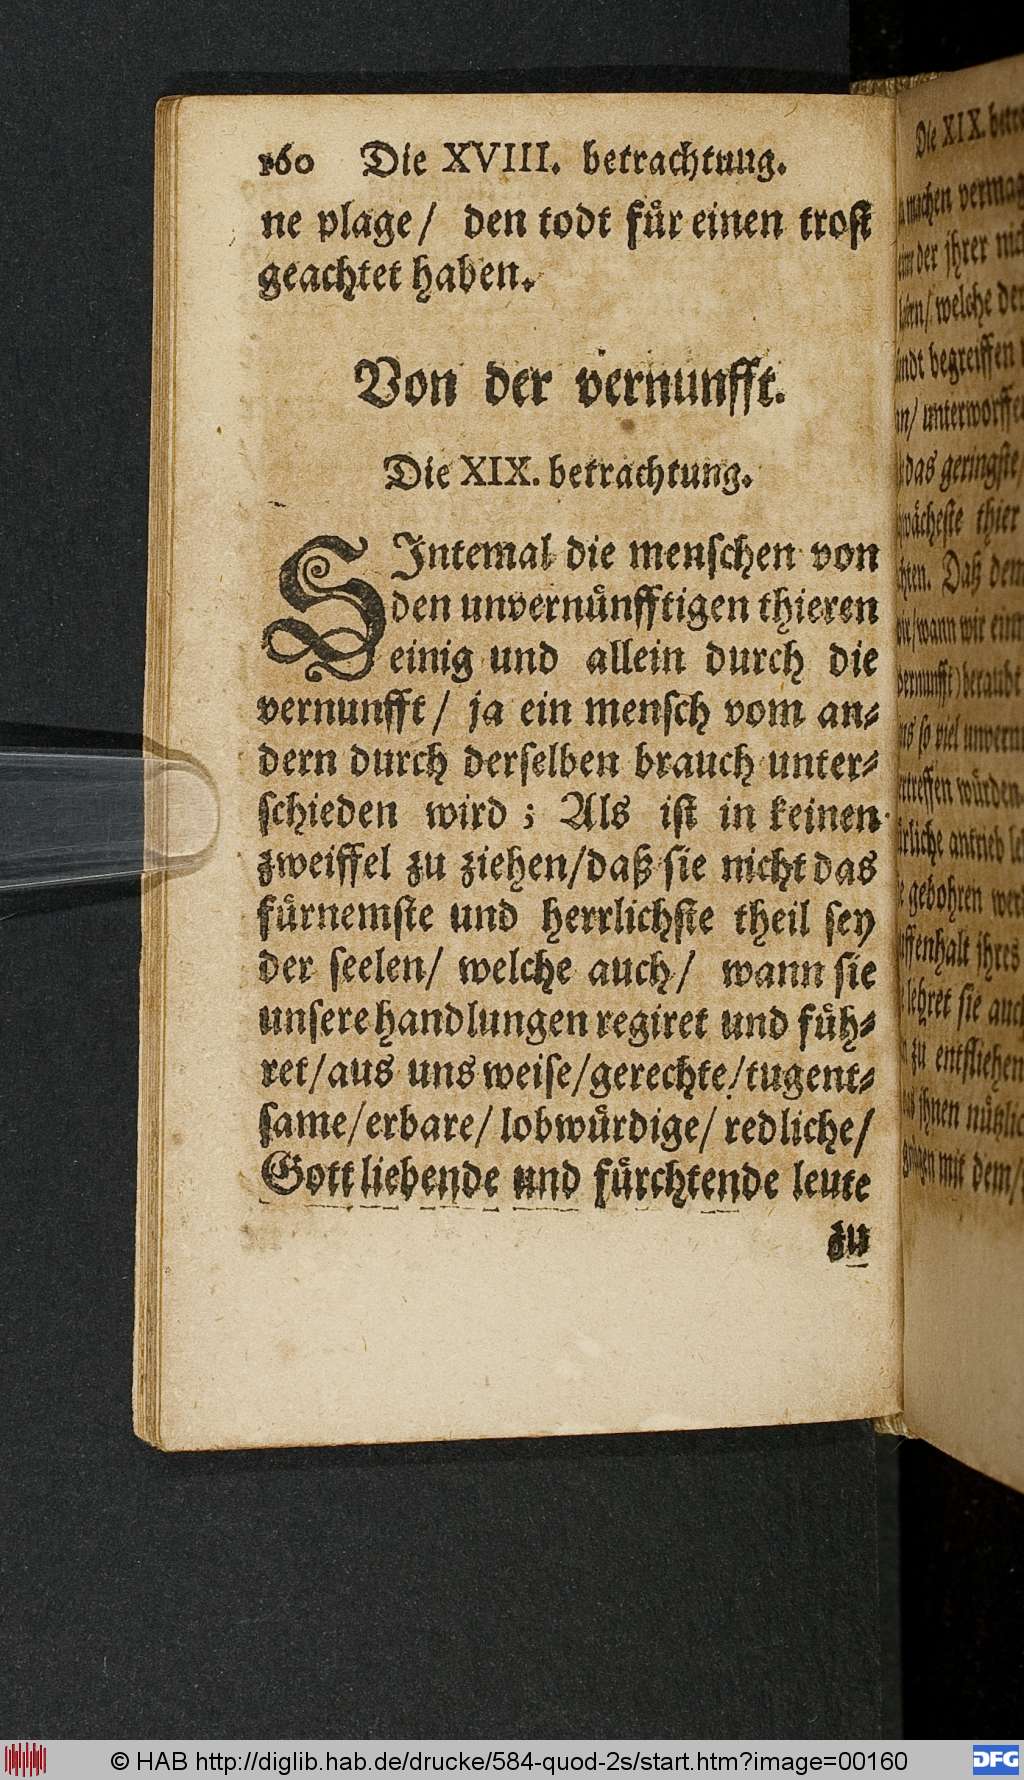 160 Die XVIII. betrachtung.
ne plage/ den todt für einen trost
geachtet haben.
Von der vernunfft.
Die XIX. betrachtung.
SIntemal die menschen von
den unvernünfftigen thieren
einig und allein durch die
vernunfft/ ja ein mensch vom an-
dern durch derselben brauch unter-
schieden wird; Als ist in keinen
zweiffel zu ziehen/daß sie nicht das
fürnemste und herrlichste theil sey
der seelen/ welche auch/ wann sie
unsere handlungen regiret und füh-
ret/aus uns weise/gerechte/tugent-
same/erbare/lobwürdige/redliche/
Gott liebende und fürchtende leute
zu
Die XIX. betra
machen vermag
der jhrer nic
welche der
begreiffen
unterworffe
das geringste
thier
Daß dem
wann wir ein
vernunfft) beraubt
so viel unvern
würden
antrieb
gebohren wer
jhres
lehret sie auch
zu entfliehen
jhnen nützlic
mit dem/
© HAB http://diglib.hab.de/drucke/584-quod-2s/start.htm?image=00160
DFG